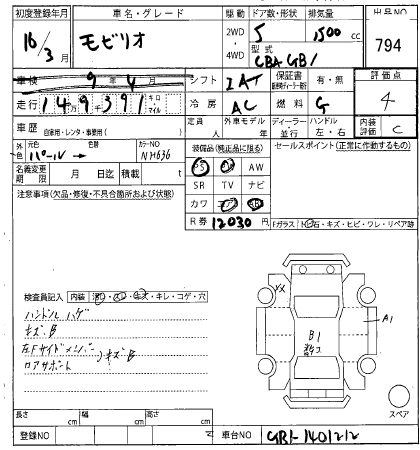 初度登録年月 車名・グレード 駆動 ドア数・形状 排気量 出品NO
16/3月 モビリオ 2WD・4WD 5 1500 cc 794
型式 CBA GB1
車検 9年4月 シフト IAT 保証書 有・無 評価点
走行 149391 キロ マイル 冷房 AC 燃料 G 4
車歴 自家用・レンタ・事業用( ) 定員 人 外車モデル 年 ディーラー・並行 ハンドル 左・右 内装評価 C
外色 元色 パール 色替 カラーNO NH636 装備品(純正品に限る) セールスポイント(正常に作動するもの)
名義変更期限 月 日迄 積載 t PS AW
注意事項(欠品・修復・不具合箇所および状態) SR TV ナビ
カワ
R券 12030円 Fガラス 石・キズ・ヒビ・ワレ・リペア跡
検査員記入 内装 キレ・コゲ・穴
ハンドルハゲ
キズB
左Fサイドメンバー
ロアサポート キズB
B1
A1
スペア
長さ cm 幅 cm 高さ cm
登録NO 車台NO GB1-1401212